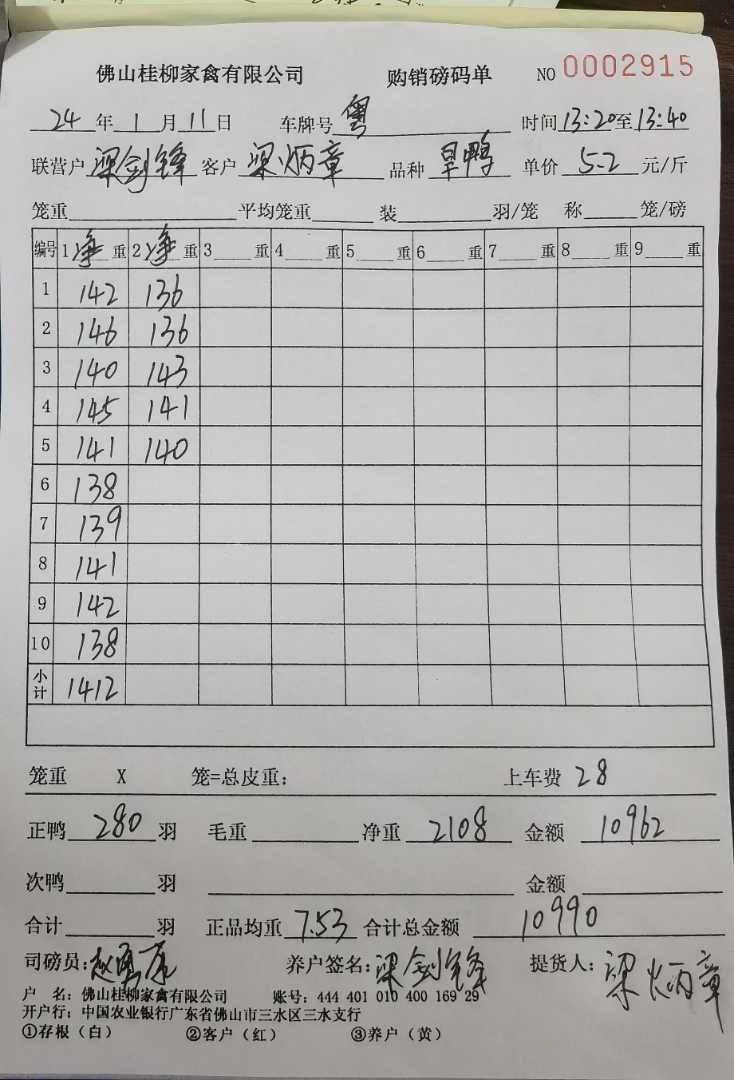 佛山桂柳家禽有限公司 购销磅码单 NO 0002915
24年1月11日 车牌号 粤 时间13:20至13:40
联营户 梁剑锋 客户 梁炳章 品种 旱鸭 单价 5.2 元/斤
笼重 平均笼重 装 羽/笼 称 笼/磅
编号 1净重 2净重 3 重 4 重 5 重 6 重 7 重 8 重 9 重
1 142 136
2 146 136
3 140 143
4 145 141
5 141 140
6 138
7 139
8 141
9 142
10 138
小计 1412
笼重 X 笼=总皮重: 上车费 28
正鸭 280 羽 毛重 净重 2108 金额 10962
次鸭 羽 金额
合计 羽 正品均重 7.53 合计总金额 10990
司磅员: 养户签名:梁剑锋 提货人: 梁炳章
户 名: 佛山桂柳家禽有限公司 账号: 444 401 010 400 169 29
开户行: 中国农业银行广东省佛山市三水区三水支行
①存根(白) ②客户(红) ③养户(黄)